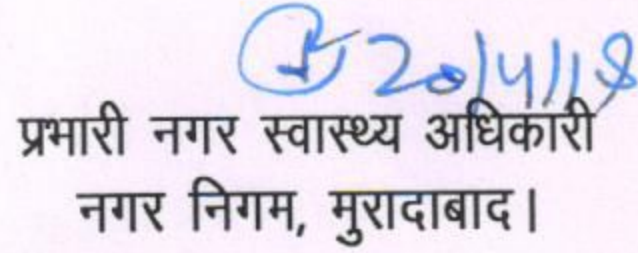 20/4/18
प्रभारी नगर स्वास्थ्य अधिकारी
नगर निगम, मुरादाबाद।